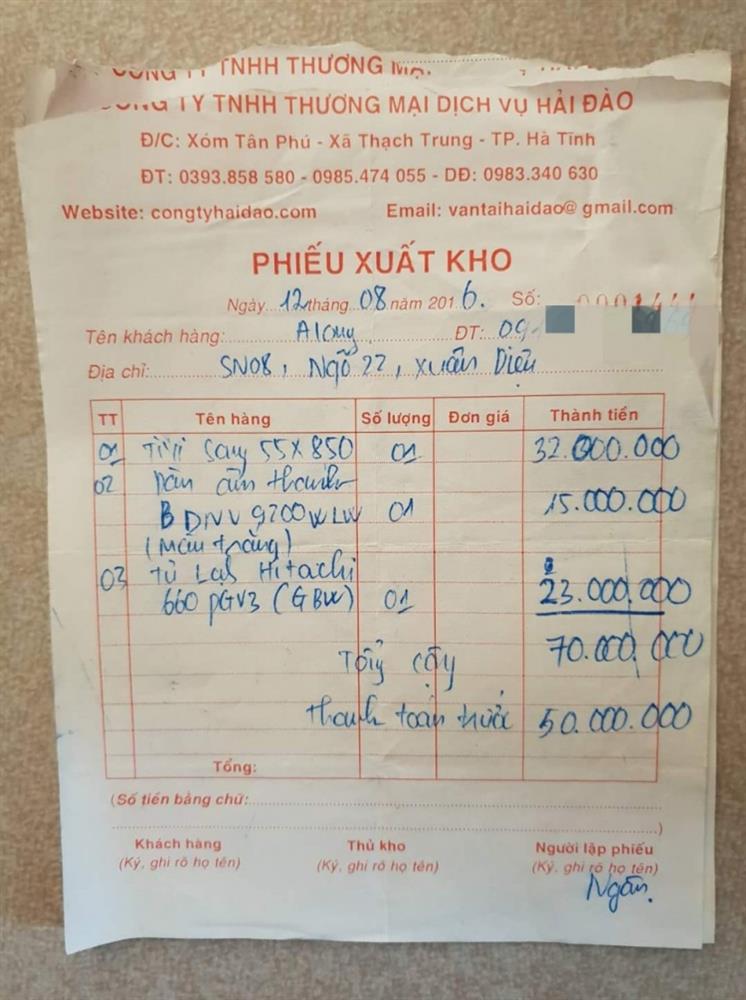 CÔNG TY TNHH THƯƠNG MẠ
CÔNG TY TNHH THƯƠNG MẠI DỊCH VỤ HẢI ĐÀO
Đ/C: Xóm Tân Phú - Xã Thạch Trung - TP. Hà Tĩnh
ĐT: 0393.858 580 - 0985.474 055 - DĐ: 0983.340 630
Website: congtyhaidao.com Email: vantaihaidao@ gmail.com
PHIẾU XUẤT KHO
Ngày 12 tháng 08 năm 2016. Số:
Tên khách hàng: ĐT: 09
Địa chỉ: SN08, Ngõ 22, Xuân Diệu
TT Tên hàng Số lượng Đơn giá Thành tiền
01 Tivi Sony 55X850 01 32.000.000
02 Dàn âm thanh
BDNV 9200WLW 01 15.000.000
(Màu trắng)
03 Tủ Lạh Hitachi 23.000.000
660 PGV3 (GBW) 01
Tổng cộng 70.000.000
thanh toán trước 50.000.000
Tổng:
(Số tiền bằng chữ:
)
Khách hàng Thủ kho Người lập phiếu
(Ký, ghi rõ họ tên) (Ký, ghi rõ họ tên) (Ký, ghi rõ họ tên)
Ngân.